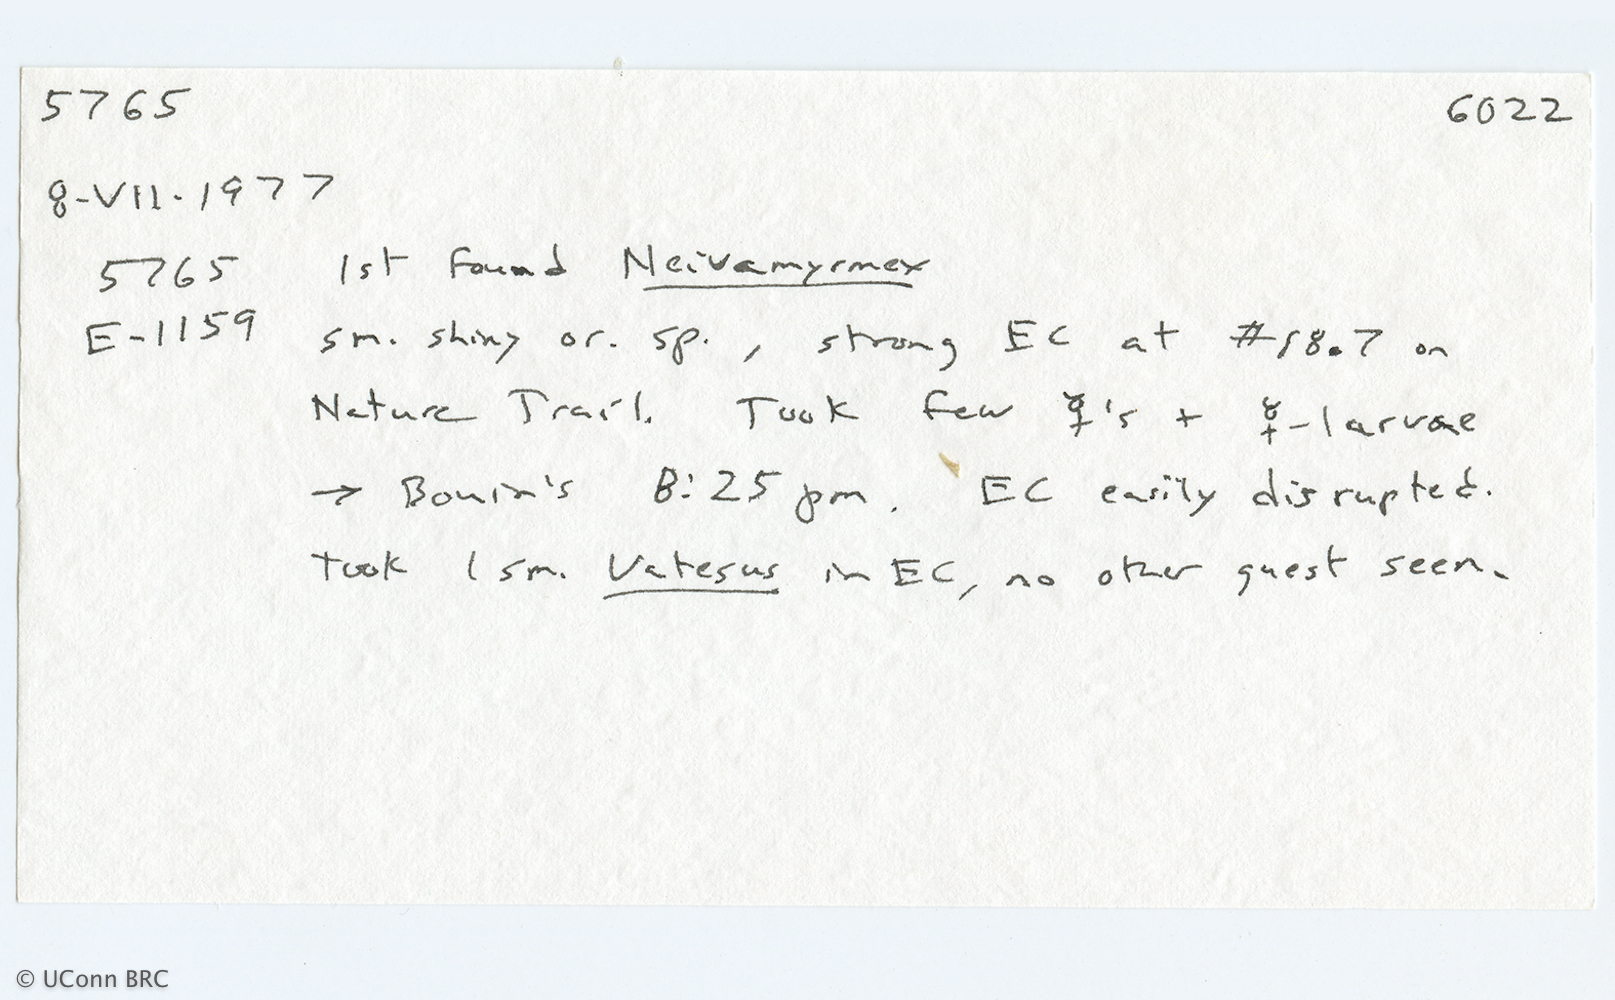 5765 6022
8-VII-1977
5765 1st found Neivamyrmex
E-1159 sm. shiny or. sp., strong EC at #18.7 on
Nature Trail. Took few ☿'s + ☿-larvae
→ Bouin's 8:25 pm. EC easily disrupted.
Took 1 sm. Vatesus in EC, no other guest seen.
© UConn BRC